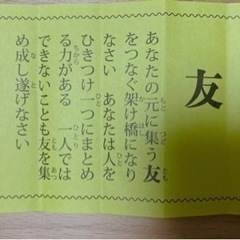 友
あなたの元に集う友
をつなぐ架け橋になり
なさい　あなたは人を
ひきつけ一つにまとめ
る力がある　一人では
できないことも友を集
め成し遂げなさい